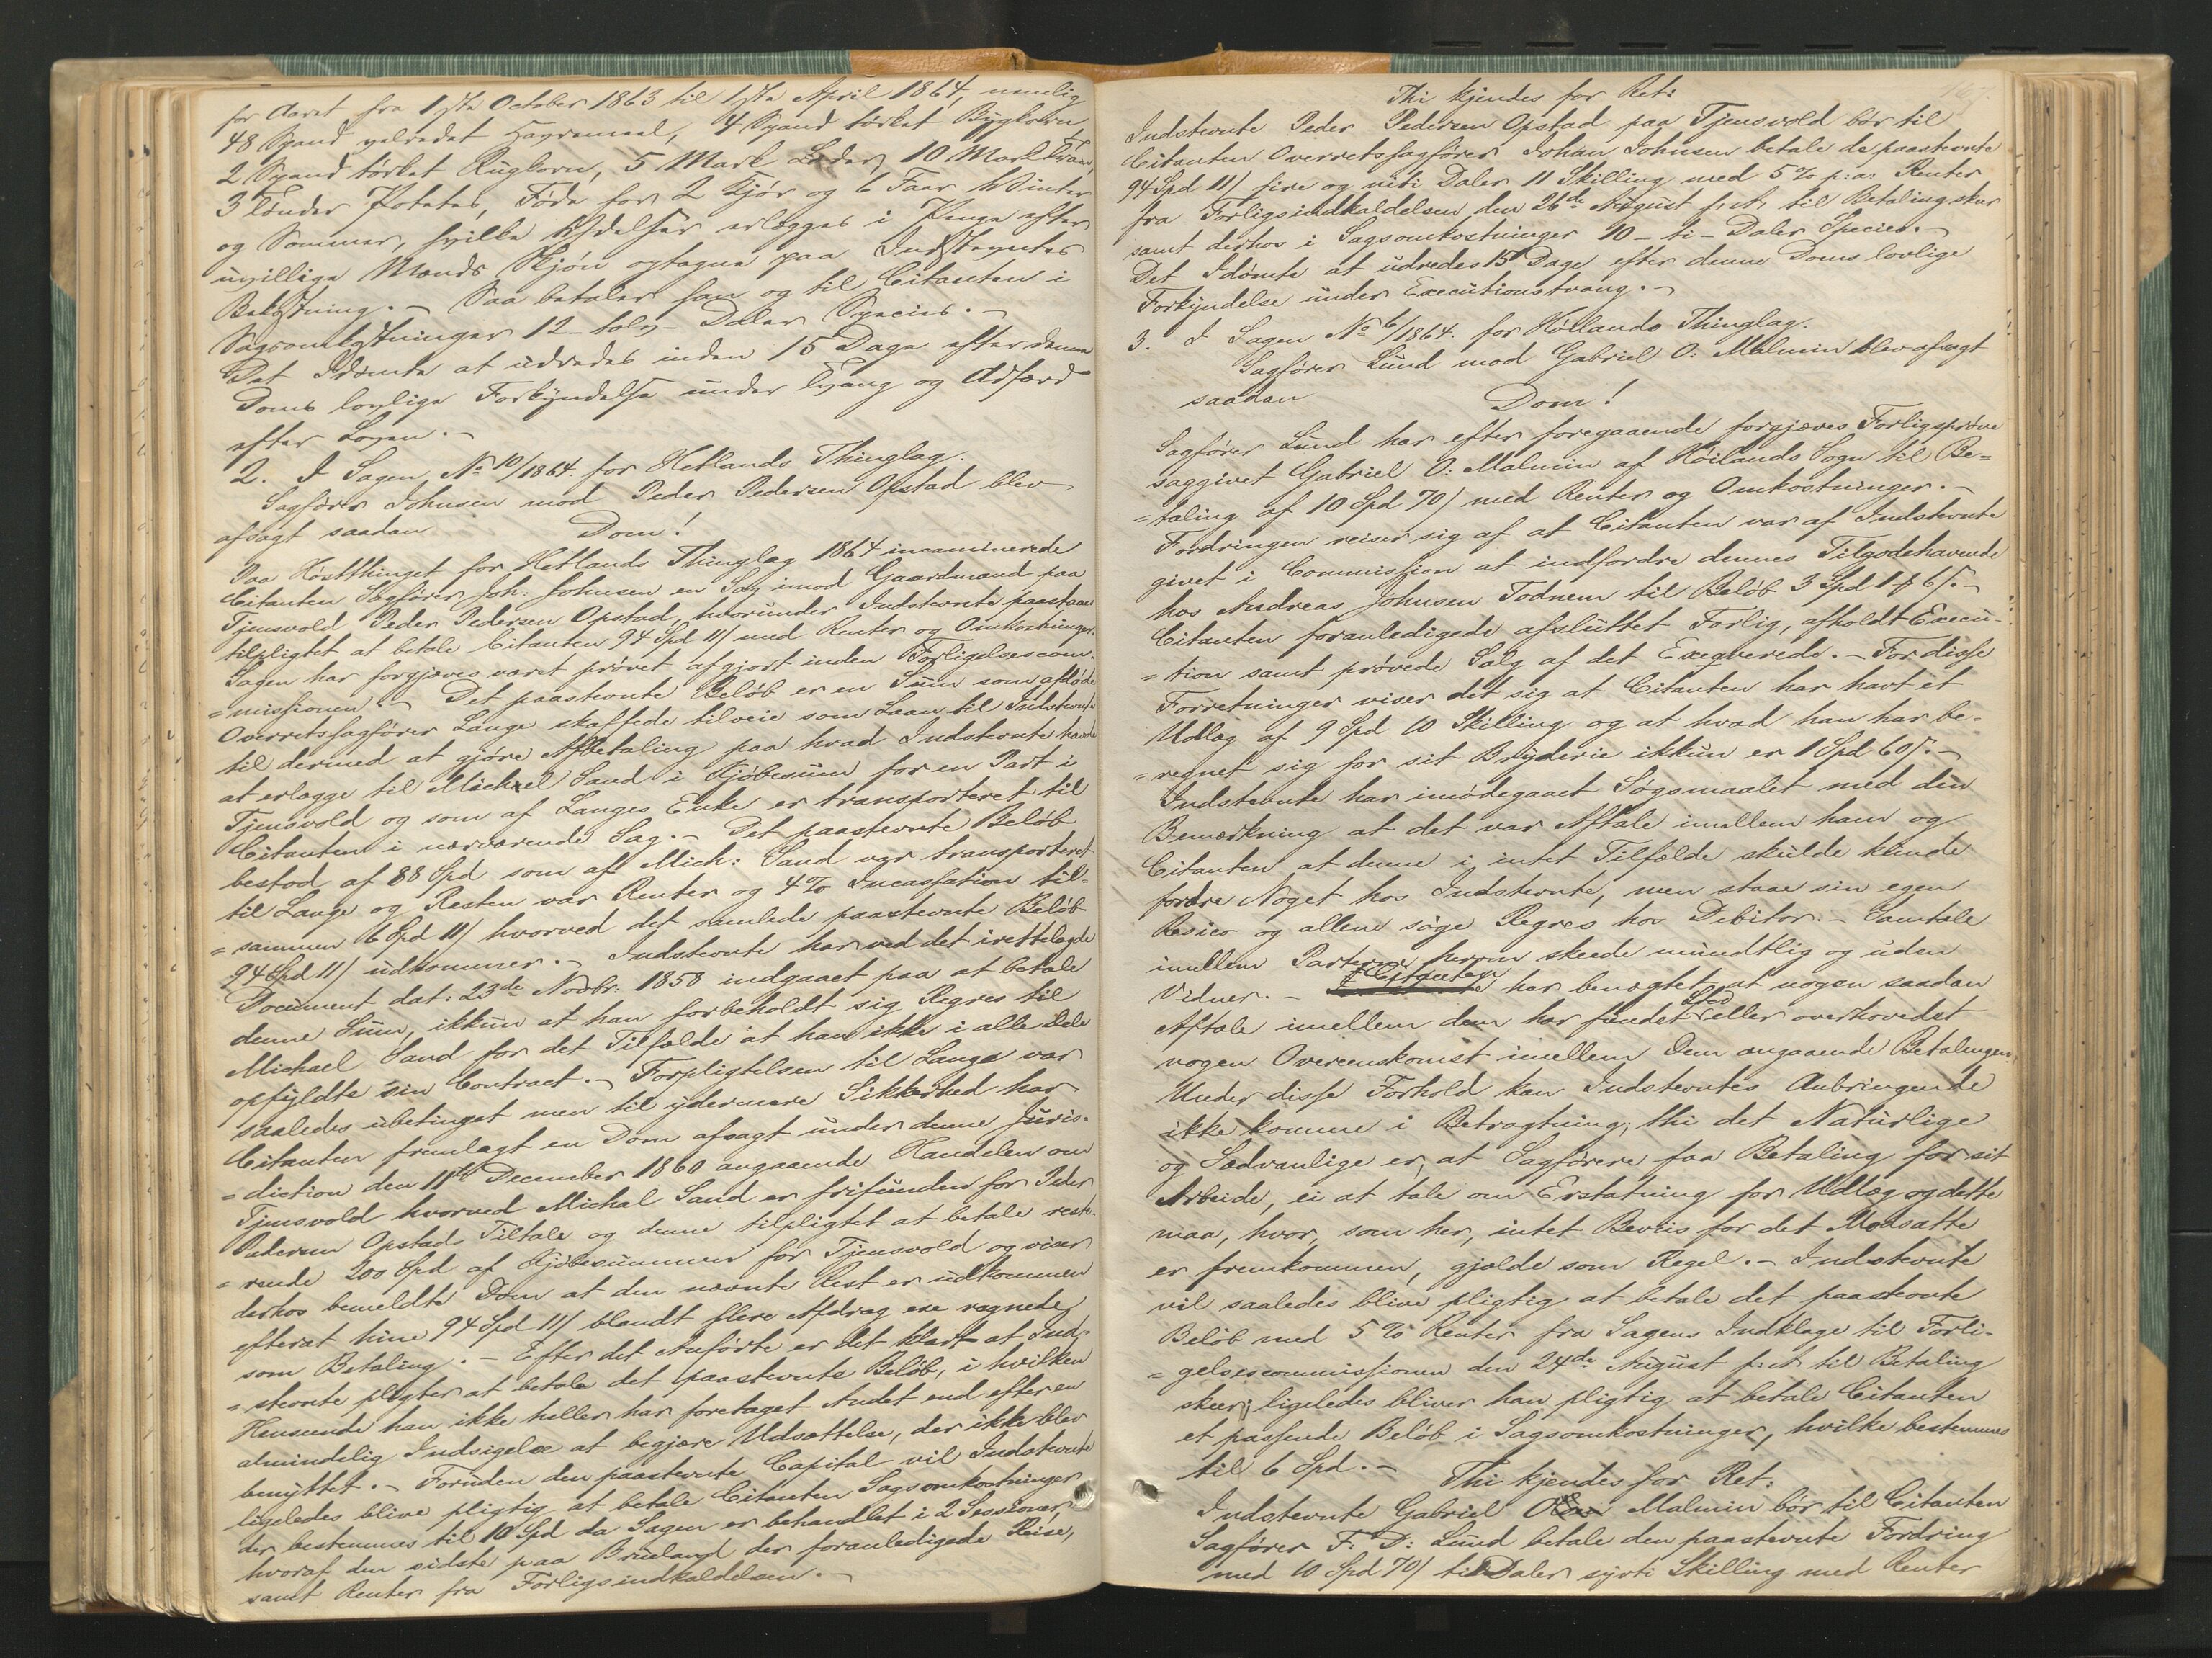 for Aaret fra 1ste October 1863 til 1ste April 1864, nemlig
48 Spand velredet Havremeel, 4 Spand tørket Bygkorn,
2 Spand tørket Rugkorn, 5 Mark Læder, 10 Mark Tran,
3 Tønder Potetes, Føde for 2 Kjør og 6 Faar Vinter
og Sommer, hvilke Ydelser erlægges i Penge efter
uvillige Mænds Skjøn optagne paa Indstevntes
Bekostning. - Saa betaler han og til Citanten i
Sagsomkostninger 12 - tolv - Daler Species. -
Det Idømte at udredes inden 15 Dage efter denne
Doms lovlige Forkyndelse under Tvang og Adfærd
efter Loven. -
2. I Sagen No 10/1864. for Hetlands Thinglag.
Sagfører Johnsen mod Peder Pedersen Opstad blev
afsagt saadan Dom!
Paa Høstthinget for Hetlands Thinglag 1864 incaminerede
Citanten Sagfører Joh: Johnsen en Sag imod Gaardmand paa
Tjensvold Peder Pedersen Opstad, hvorunder Indstevnte paastaaes
tilpligtet at betale Citanten 94 Spd 11/ med Renter og Omkostninger.
Sagen har forgjæves været prøvet afgjort inden Forligelsescom-
=missionen. - Det paastevnte Beløb er en Sum som afdøde
Overretssagfører Lange skaffede tilveie som Laan til Indstevnte
til dermed at gjøre Afbetaling paa hvad Indstevnte havde
at erlægge til Michael Sand i Kjøbesum for en Part i
Tjensvold og som af Langes Enke er transporteret til
Citanten i nærværende Sag. - Det paastevnte Beløb
bestod af 88 Spd som af Mich: Sand var transporteret
til Lange og Resten var Renter og 4% Incassation til-
=sammen 6 Spd 11/ hvorved det samlede paastevnte Beløb
94 Spd 11/ udkommer. - Indstevnte har ved det irettelagde
Document dat: 23de Novbr: 1858 indgaaet paa at betale
denne Sum, ikkun at han forbeholdt sig Regres til
Michael Sand for det Tilfælde at han ikke i alle Dele
opfyldte sin Contract. - Forpligtelsen til Lange var
saaledes ubetinget men til ydermere Sikkerhed har
Citanten fremlagt en Dom afsagt under denne Juris-
=diction den 11te December 1860 angaaende Handelen om
Tjensvold hvorved Michal Sand er frifunden for Peder
Pedersen Opstads Tiltale og denne tilpligtet at betale reste-
=rende 200 Spd af Kjøbesummen for Tjensvold og viser
derhos bemeldte Dom at den nævnte Rest er udkommen
efterat hine 94 Spd 11/ blandt flere Afdrag ere regnede
som Betaling. - Efter det Anførte er det klart at Ind-
=stevnte pligter at betale det paastevnte Beløb, i hvilken
Henseende han ikke heller har foretaget Andet end efter en
almindelig Indsigelse at begjære Udsættelse, der ikke blev
benyttet. - Foruden den paastevnte Capital vil Indstevnte
ligeledes blive pligtig at betale Citanten Sagsomkostninger
der bestemmes til 10 Spd da Sagen er behandlet i 2 Sessioner,
hvoraf den sidste paa Brueland der foranledigede Reise,
samt Renter fra Forligsindkaldelsen. -
Thi kjendes for Ret:
Indstevnte Peder Pedersen Opstad paa Tjensvold bør til
Citanten Overretssagfører Johan Johnsen betale de paastevnte
94 Spd 11/ fire og niti Daler 11 Skilling med 5% p: a: Renter
fra Forligsindkaldelsen den 26de August f: A: til Betaling skeer
samt derhos i Sagsomkostninger 10 - ti - Daler Species. -
Det Idømte at udredes 15 Dage efter denne Doms lovlige
Forkyndelse under Executionstvang. -
3. I Sagen No 6/1864. for Høilands Thinglag.
Sagfører Lund mod Gabriel O: Malmin blev afsagt
saadan Dom!
Sagfører Lund har efter foregaaende forgjæves Forligsprøve
saggivet Gabriel O: Malmin af Høilands Sogn til Be=
=taling af 10 Spd 70/ med Renter og Omkostninger. -
Fordringen reiser sig af at Citanten var af Indstevnte
givet i Commission at indfordre dennes Tilgodehavende
hos Andreas Johnsen Todnem til Beløb 3 Spd 1 # 6 s. -
Citanten foranledigede afsluttet Forlig, afholdt Execu-
=tion samt prøvede Salg af det Exeqverede. - For disse
Forretninger viser det sig at Citanten har havt et
Udlæg af 9 Spd 10 Skilling og at hvad han har be-
=regnet sig for sit Bryderie ikkun er 1 Spd 60 s. -
Indstevnte har imødegaaet Søgsmaalet med den
Bemærkning at det var Aftale imellem ham og
Citanten at denne i intet Tilfælde skulde kunde
fordre Noget hos Indstevnte, men staae sin egen
Resico og allene søge Regres hos Debitor. - Samtale
imellem Parterne herom skeede mundtlig og uden
Vidner. - Citanten har benægtet at nogen saadan
Aftale imellem dem har fundet Sted eller overhovedet
nogen Overeenskomst imellem Dem angaaende Betalingen.
Under disse Forhold kan Indstevntes Anbringende
ikke komme i Betragtning; thi det Naturlige
og Sædvanlige er, at Sagførere faa Betaling for sit
Arbeide, ei at tale om Erstatning for Udlæg og dette
maa, hvor, som her, intet Beviis for det Modsatte
er fremkommen, gjælde som Regel. - Indstevnte
vil saaledes blive pligtig at betale det paastevnte
Beløb med 5% Renter fra Sagens Indklage til Forli-
=gelsescommissionen den 24de August f: A: til Betaling
skeer; ligeledes bliver han pligtig at betale Citanten
et passende Beløb i Sagsomkostninger, hvilke bestemmes
til 6 Spd. - Thi kjendes for Ret:
Indstevnte Gabriel Malmin bør til Citanten
Sagfører F: D: Lund betale den paastevnte Fordring
med 10 Spd 70/ ti Daler sytti Skilling med Renter